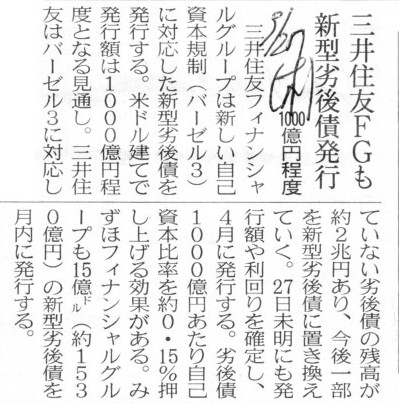 三井住友FGも
新型劣後債発行
1000億円程度
3/27
三井住友フィナンシャ
ルグループは新しい自己
資本規制（バーゼル3）
に対応した新型劣後債を
発行する。米ドル建てで
発行額は1000億円程
度となる見通し。三井住
友はバーゼル3に対応し
ていない劣後債の残高が
約2兆円あり、今後一部
を新型劣後債に置き換え
ていく。27日未明にも発
行額や利回りを確定し、
4月に発行する。劣後債
1000億円あたり自己
資本比率を約0・15%押
し上げる効果がある。み
ずほフィナンシャルグル
ープも15億㌦（約153
0億円）の新型劣後債を
月内に発行する。